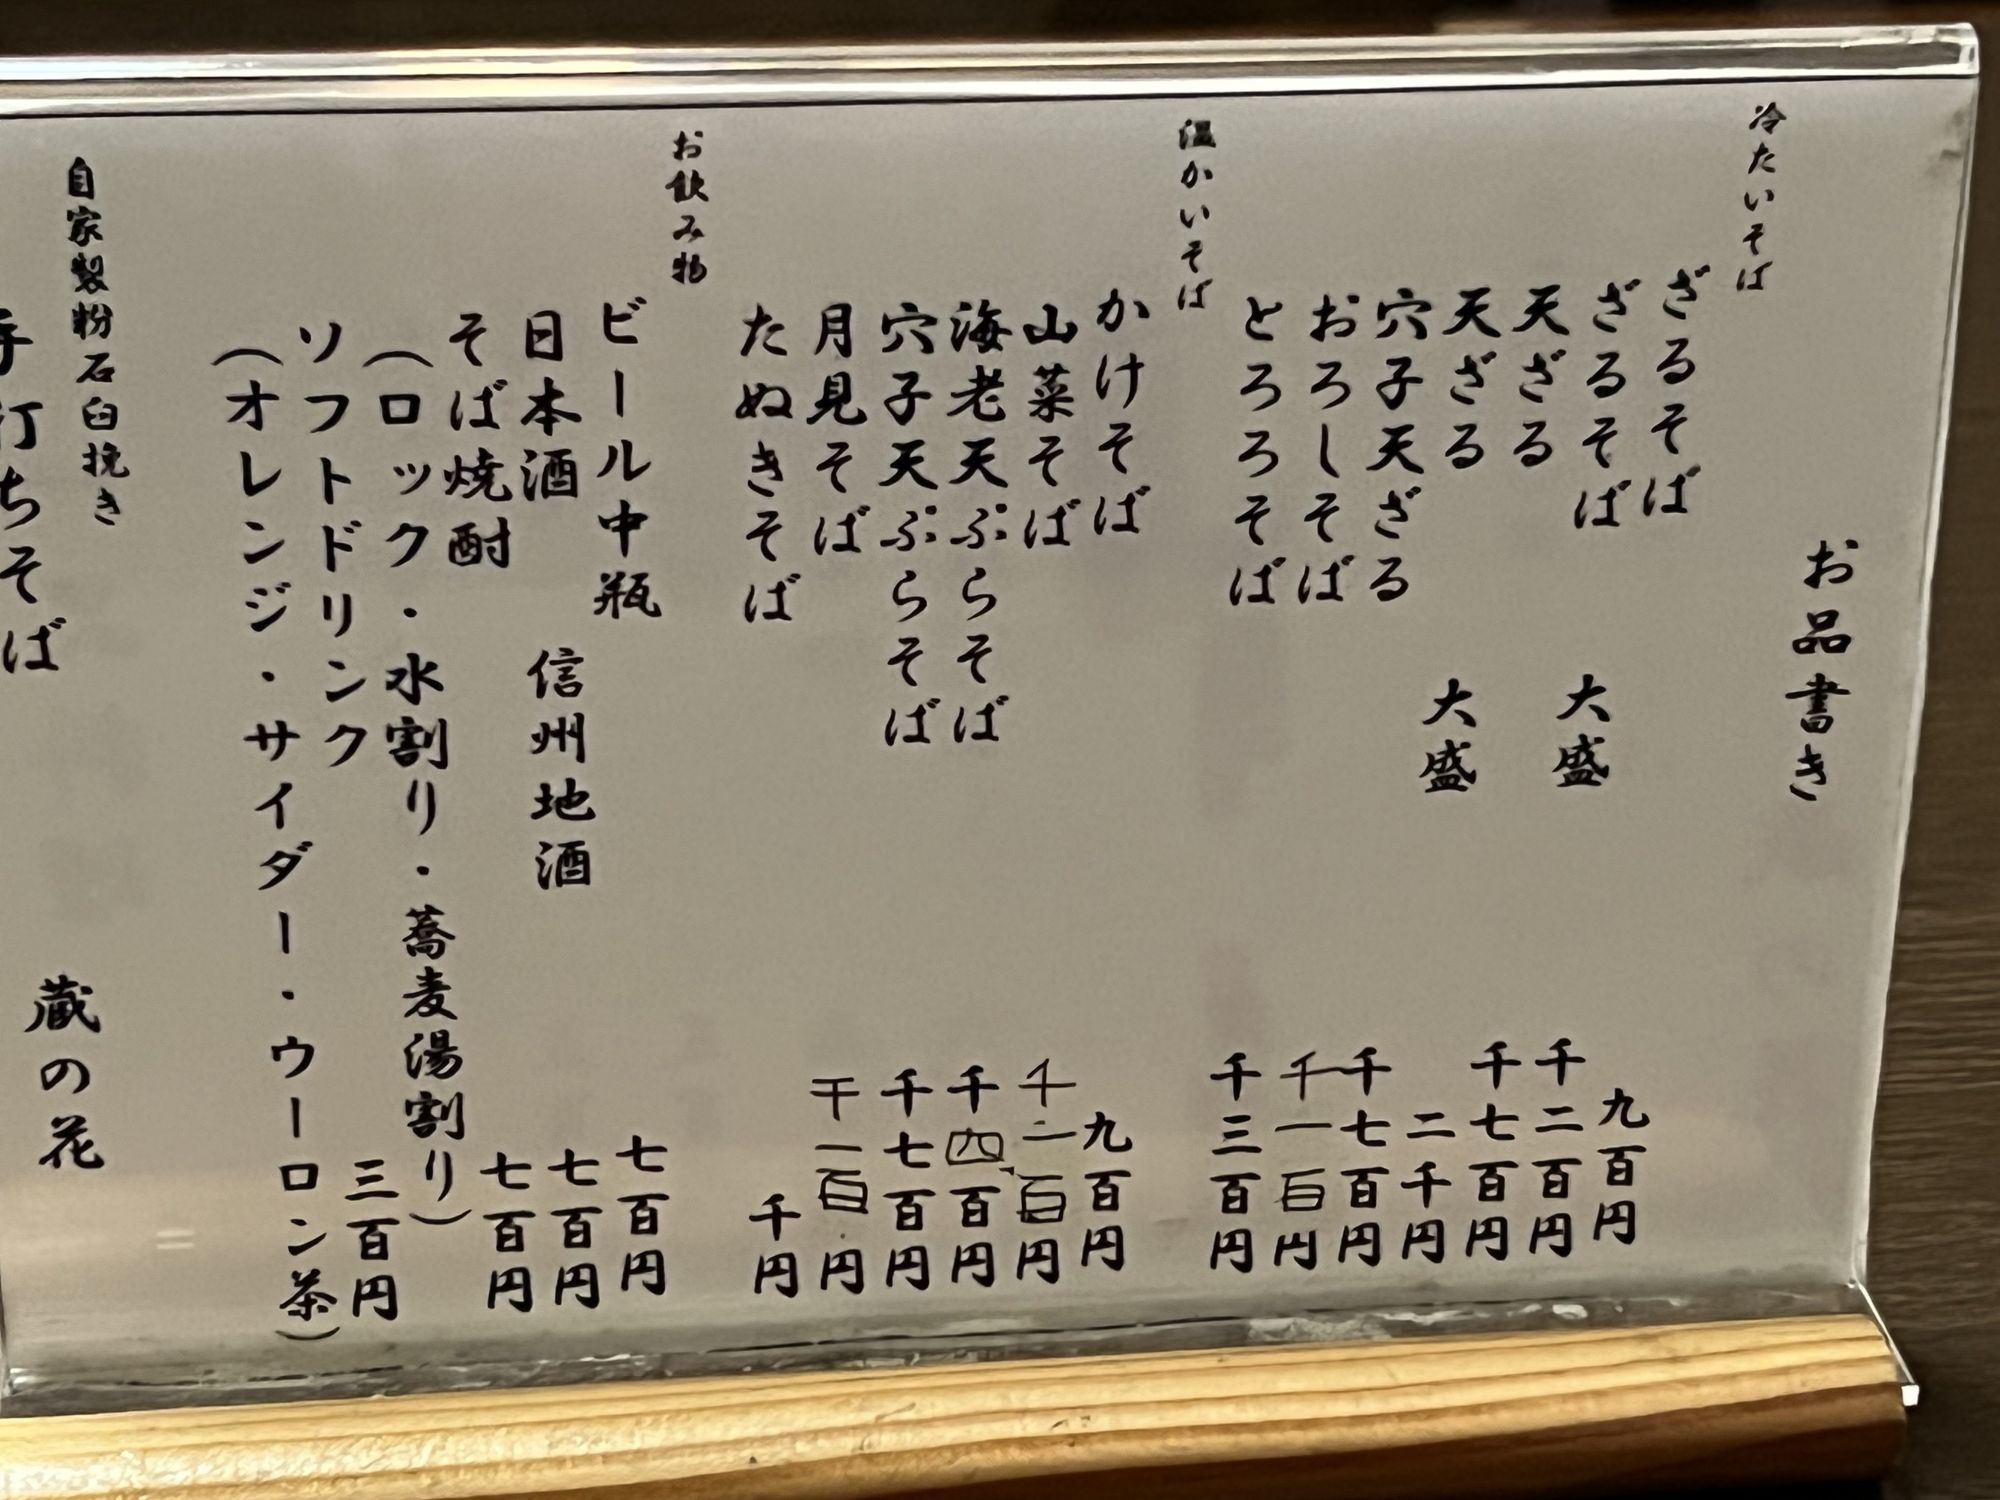 お品書き
冷たいそば
ざるそば 九百円
ざるそば 大盛 千二百円
天ざる 千七百円
天ざる 大盛 二千円
穴子天ざる 千七百円
おろしそば 千一百円
とろろそば 千三百円
温かいそば
かけそば 九百円
山菜そば 千二百円
海老天ぷらそば 千四百円
穴子天ぷらそば 千七百円
月見そば 千一百円
たぬきそば 千円
お飲み物
ビール中瓶 七百円
日本酒 信州地酒 七百円
そば焼酎 七百円
(ロック・水割り・蕎麦湯割り)
ソフトドリンク 三百円
(オレンジ・サイダー・ウーロン茶)
自家製粉石臼挽き
手打ちそば 蔵の花